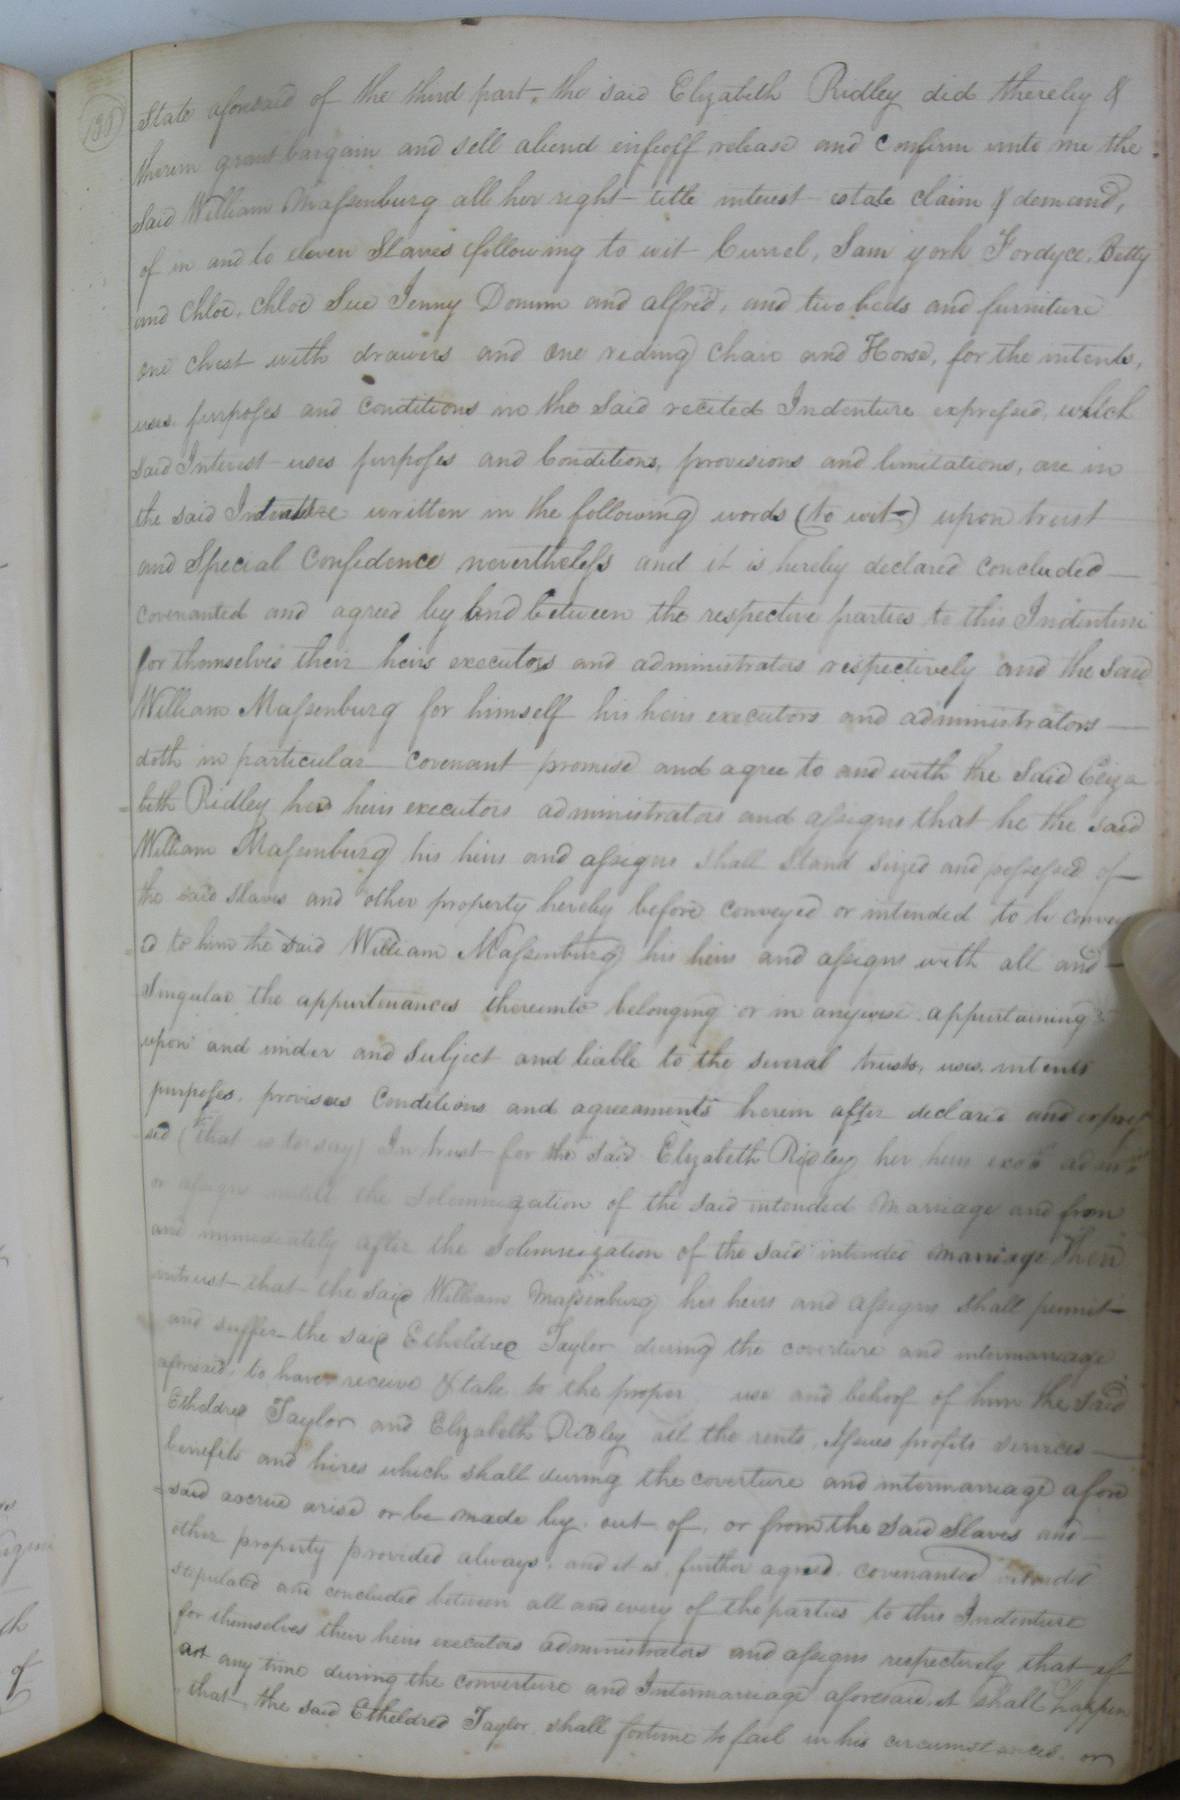 State aforesaid of the third part. the said Elizabeth Ridley did thereby &
therein grant bargain and sell aliend enfeoff release and Confirm unto me the
said William Massenburg all her right title interest estate claim & demand,
of in and to eleven Slaves following to wit Currel, Sam york Fordyce, Betty
and Chloe, Chloe Sue Jenny Donum and alfred, and two beds and furniture
one chest with drawers and one reding chair and Horse, for the intents,
uses purposes and conditions in the said recited Indenture expressed, which
said Interest uses purposes and Conditions, provisions and limitations, are in
the said Indenture written in the following words (to wit) upon trust
and Special Confidence nevertheless and it is hereby declared concluded
covenanted and agreed by and between the respective parties to this Indenture
for themselves their heirs executors and administrators respectively and the said
William Massenburg for himself his heirs executors and administrators
doth in particular covenant promise and agree to and with the said Eliza
beth Ridley her heirs executors administrators and assigns that he the said
William Massenburg his heirs and assigns shall stand seized and possessed of
the said slaves and other property hereby before conveyed or intended to be convey
d to him the said William Massenburg his heirs and assigns with all and
Singular the appurtenances thereunto belonging or in anywise appurtaining
upon and under and subject and liable to the several trusts, uses, intents
purposes, provisoes Conditions and agreements herein after declared and expres
sed (that is to say) In trust for the said Elizabeth Ridley her heirs exors admrs
or assigns untill the Solemnization of the said intended Marriage and from
and immediately after the Solemnization of the said intended marriage Then
intrust that the said William Massenburg his heirs and assigns shall permit
and suffer the said Etheldred Taylor during the coverture and intermarriage
aforesaid, to have receive & take to the proper use and behoof of him the said
Etheldred Taylor and Elizabeth Ridley all the rents, Issues profits services
benefits and hires which shall during the coverture and intermarriage afore
said accrue arise or be made by, out of, or from the said Slaves and
other property provided always, and it is further agreed covenanted intended
stipulated and concluded between all and every of the parties to this Indenture
for themselves their heirs executors administrators and assigns respectively that if
at any time during the converture and Intermarriage aforesaid, it shall happen
that the said Etheldred Taylor shall fortune to fail in his circumstances or